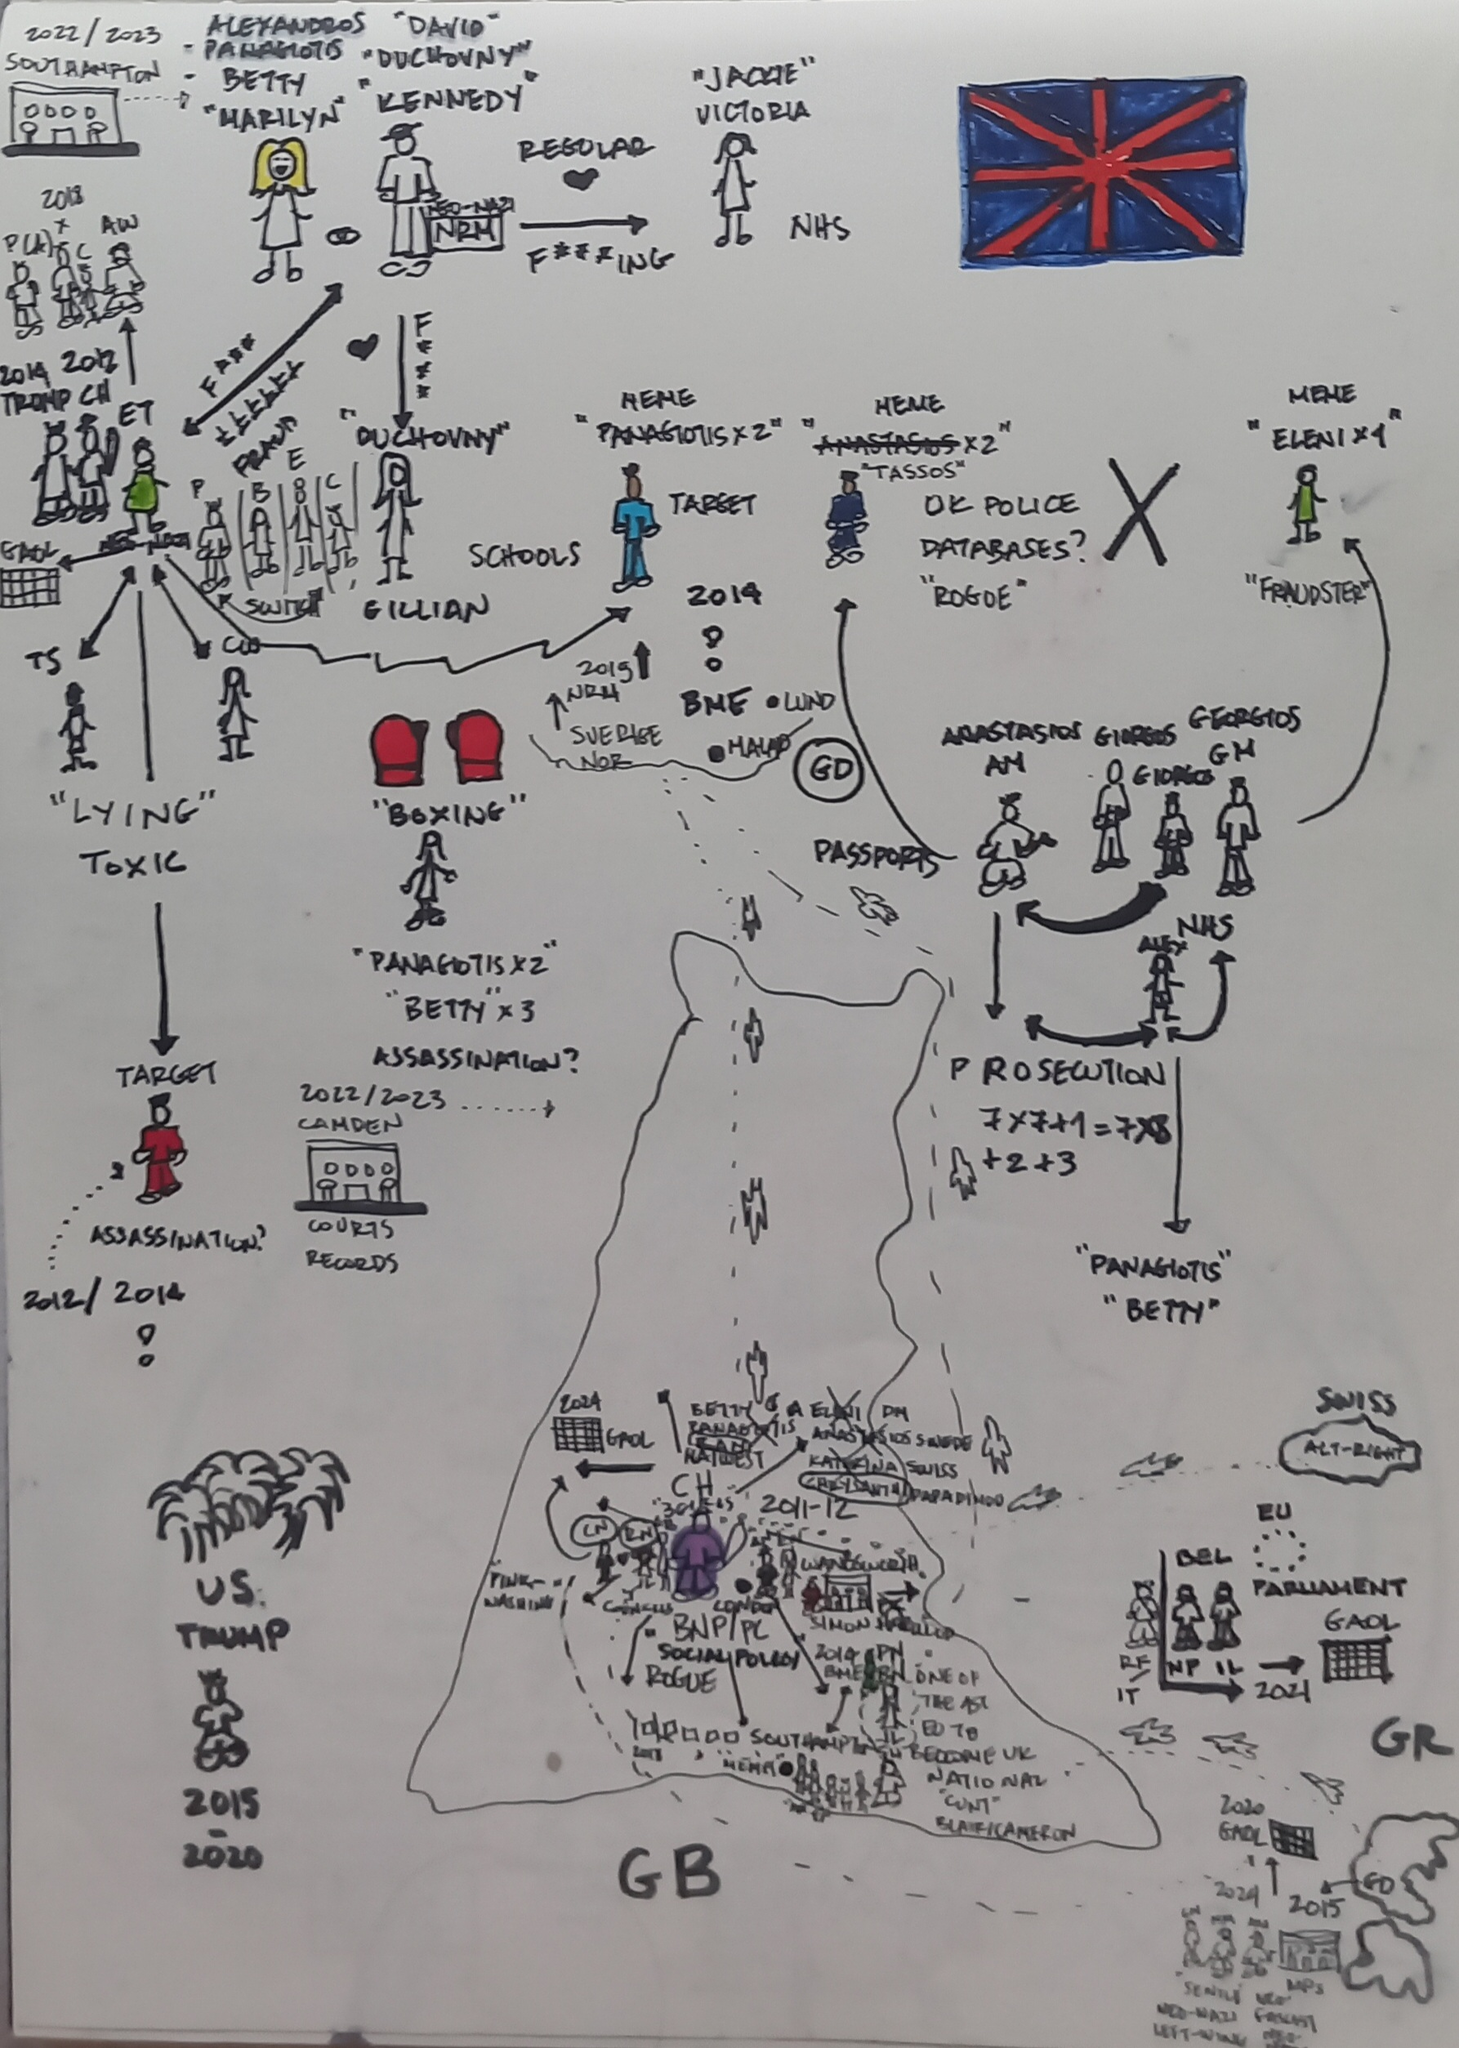 2022/2023
SOUTHAMPTON
ALEXANDROS
- PANAGIOTIS
- BETTY
"MARILYN"
"DAVID"
"DUCHOVNY"
"KENNEDY"
"JACKIE"
VICTORIA
REGULAR
F***ING
NHS
NEO-NAZI
NRM
2018
P(A) X C AW
2014 2012
TRUMP CH
ET
F***
F***
"DUCHOVNY"
P B E C
SWITCH
GILLIAN
GAOL
NEO-NAZI
MEME
"PANAGIOTIS X2"
TARGET
SCHOOLS
MEME
"ANASTASIOS X2"
"TASSOS"
UK POLICE
DATABASES?
"ROGUE"
MEME
"ELENI X1"
"FRAUDSTER"
TS
CW
"LYING"
TOXIC
TARGET
ASSASSINATION?
2012/2014
!
"BOXING"
"PANAGIOTIS X2"
"BETTY" X3
ASSASSINATION?
2022/2023
CAMDEN
COURTS
RECORDS
2014
!
2015
NRM
BME
LUND
SVERIGE
NOR
MALMO
GD
PASSPORTS
ANASTASIOS
AM
GIORGOS
GIORGOS
GEORGIOS
GM
NHS
ALEX
PROSECUTION
7X7+1=7X8
+2+3
"PANAGIOTIS"
"BETTY"
2024
GAOL
BETTY
PANAGIOTIS
NATWEST
A ELENI DM
ANASTASIOS SWEDE
KATERINA SWISS
CHRYSANTHI PAPADIMOU
CH
2011-12
LN
RN
PINK-
WASHING
LONDON
WANDSWORTH
SIMON
BNP/PC
SOCIAL POLICY
ROGUE
2014
BME
ONE OF
THE 1ST
EU TO
BECOME UK
NATIONAL
"CUNT"
BLAIR/CAMERON
SOUTHAMPTON
2018
"MEME"
GB
US
TRUMP
2015
-
2020
SWISS
ALT-RIGHT
EU
BEL
PARLIAMENT
GAOL
RF
IT
NP IL
2021
GR
2020
GAOL
GD
2024
2015
MPs
"SENILE"
NEO-NAZI
FASCIST
LEFT-WING
NEO-